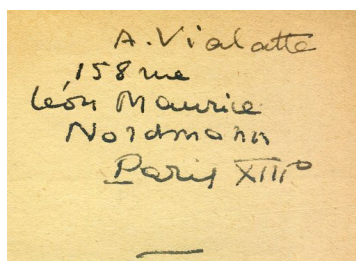 A. Vialatte
158 rue
Léon Maurice
Nordmann
Paris XIII°